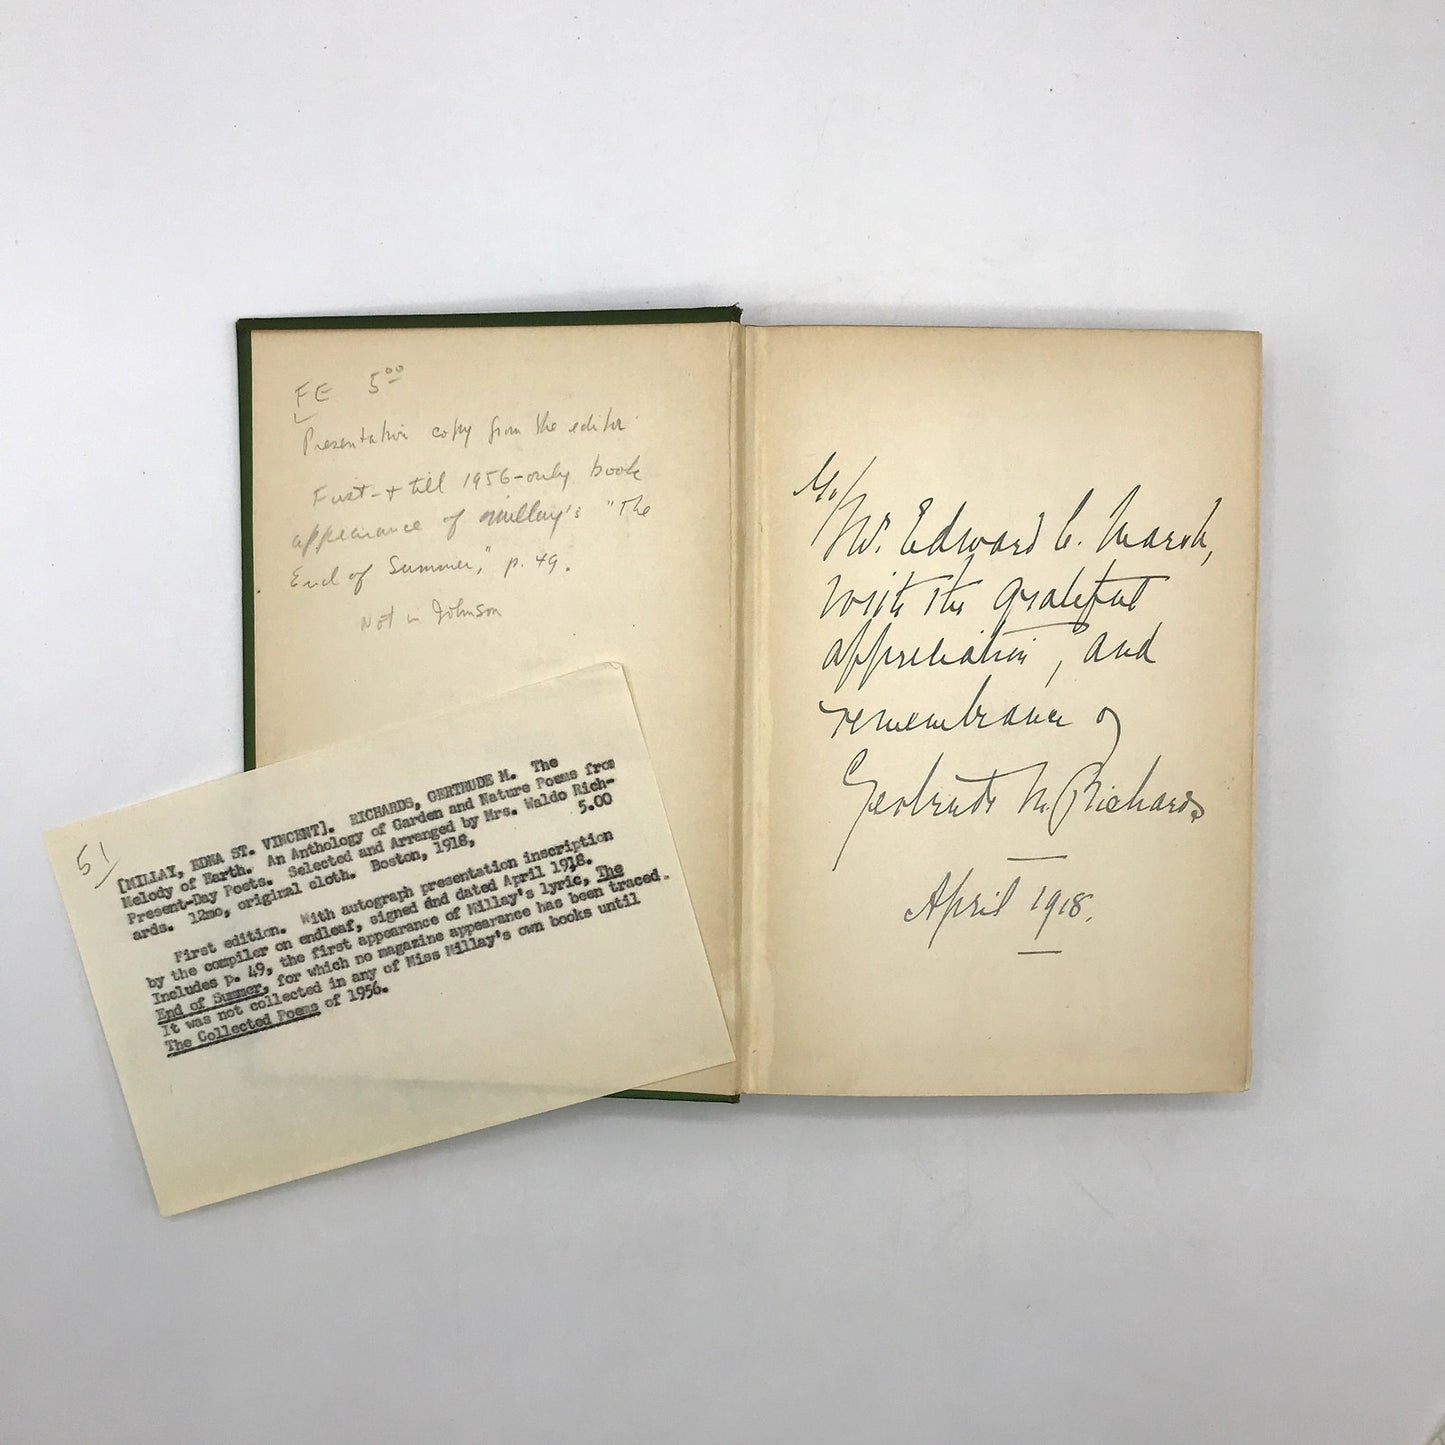 FE 5⁰⁰
Presentation copy from the editor
First - & till 1956 - only book
appearance of Millay's "The
End of Summer," p. 49.
Not in Johnson
51
[MILLAY, EDNA ST. VINCENT]. RICHARDS, GERTRUDE M. The
Melody of Earth. An Anthology of Garden and Nature Poems from
Present-Day Poets. Selected and Arranged by Mrs. Waldo Rich-
ards. 12mo, original cloth. Boston, 1918, 5.00
First edition. With autograph presentation inscription
by the compiler on endleaf, signed and dated April 1918.
Includes p. 49, the first appearance of Millay's lyric, The
End of Summer, for which no magazine appearance has been traced.
It was not collected in any of Miss Millay's own books until
The Collected Poems of 1956.
To/
Mr. Edward C. Marsh,
with the grateful
appreciation, and
remembrance of
Gertrude M. Richards
April 1918.